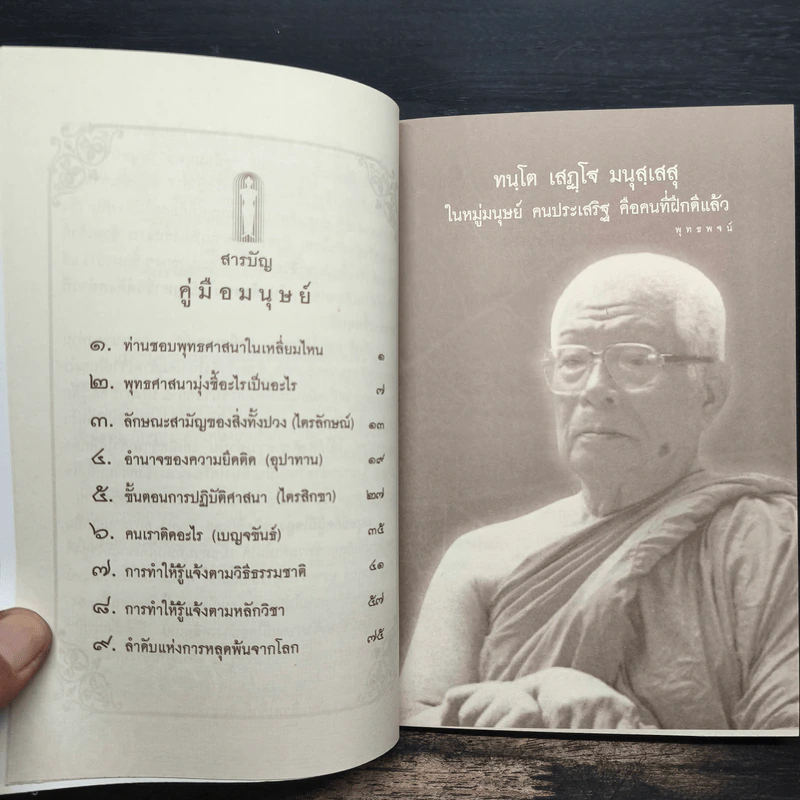 สารบัญ
คู่มือมนุษย์
๑. ท่านชอบพุทธศาสนาในเหลี่ยมไหน ๑
๒. พุทธศาสนามุ่งชี้อะไรเป็นอะไร ๗
๓. ลักษณะสามัญของสิ่งทั้งปวง (ไตรลักษณ์) ๑๓
๔. อำนาจของความยึดติด (อุปาทาน) ๑๙
๕. ขั้นตอนการปฏิบัติศาสนา (ไตรสิกขา) ๒๗
๖. คนเราติดอะไร (เบญจขันธ์) ๓๕
๗. การทำให้รู้แจ้งตามวิธีธรรมชาติ ๔๑
๘. การทำให้รู้แจ้งตามหลักวิชา ๕๗
๙. ลำดับแห่งการหลุดพ้นจากโลก ๗๕
ทนฺโต เสฏฺโฐ มนุสฺเสสุ
ในหมู่มนุษย์ คนประเสริฐ คือคนที่ฝึกดีแล้ว
พุทธพจน์